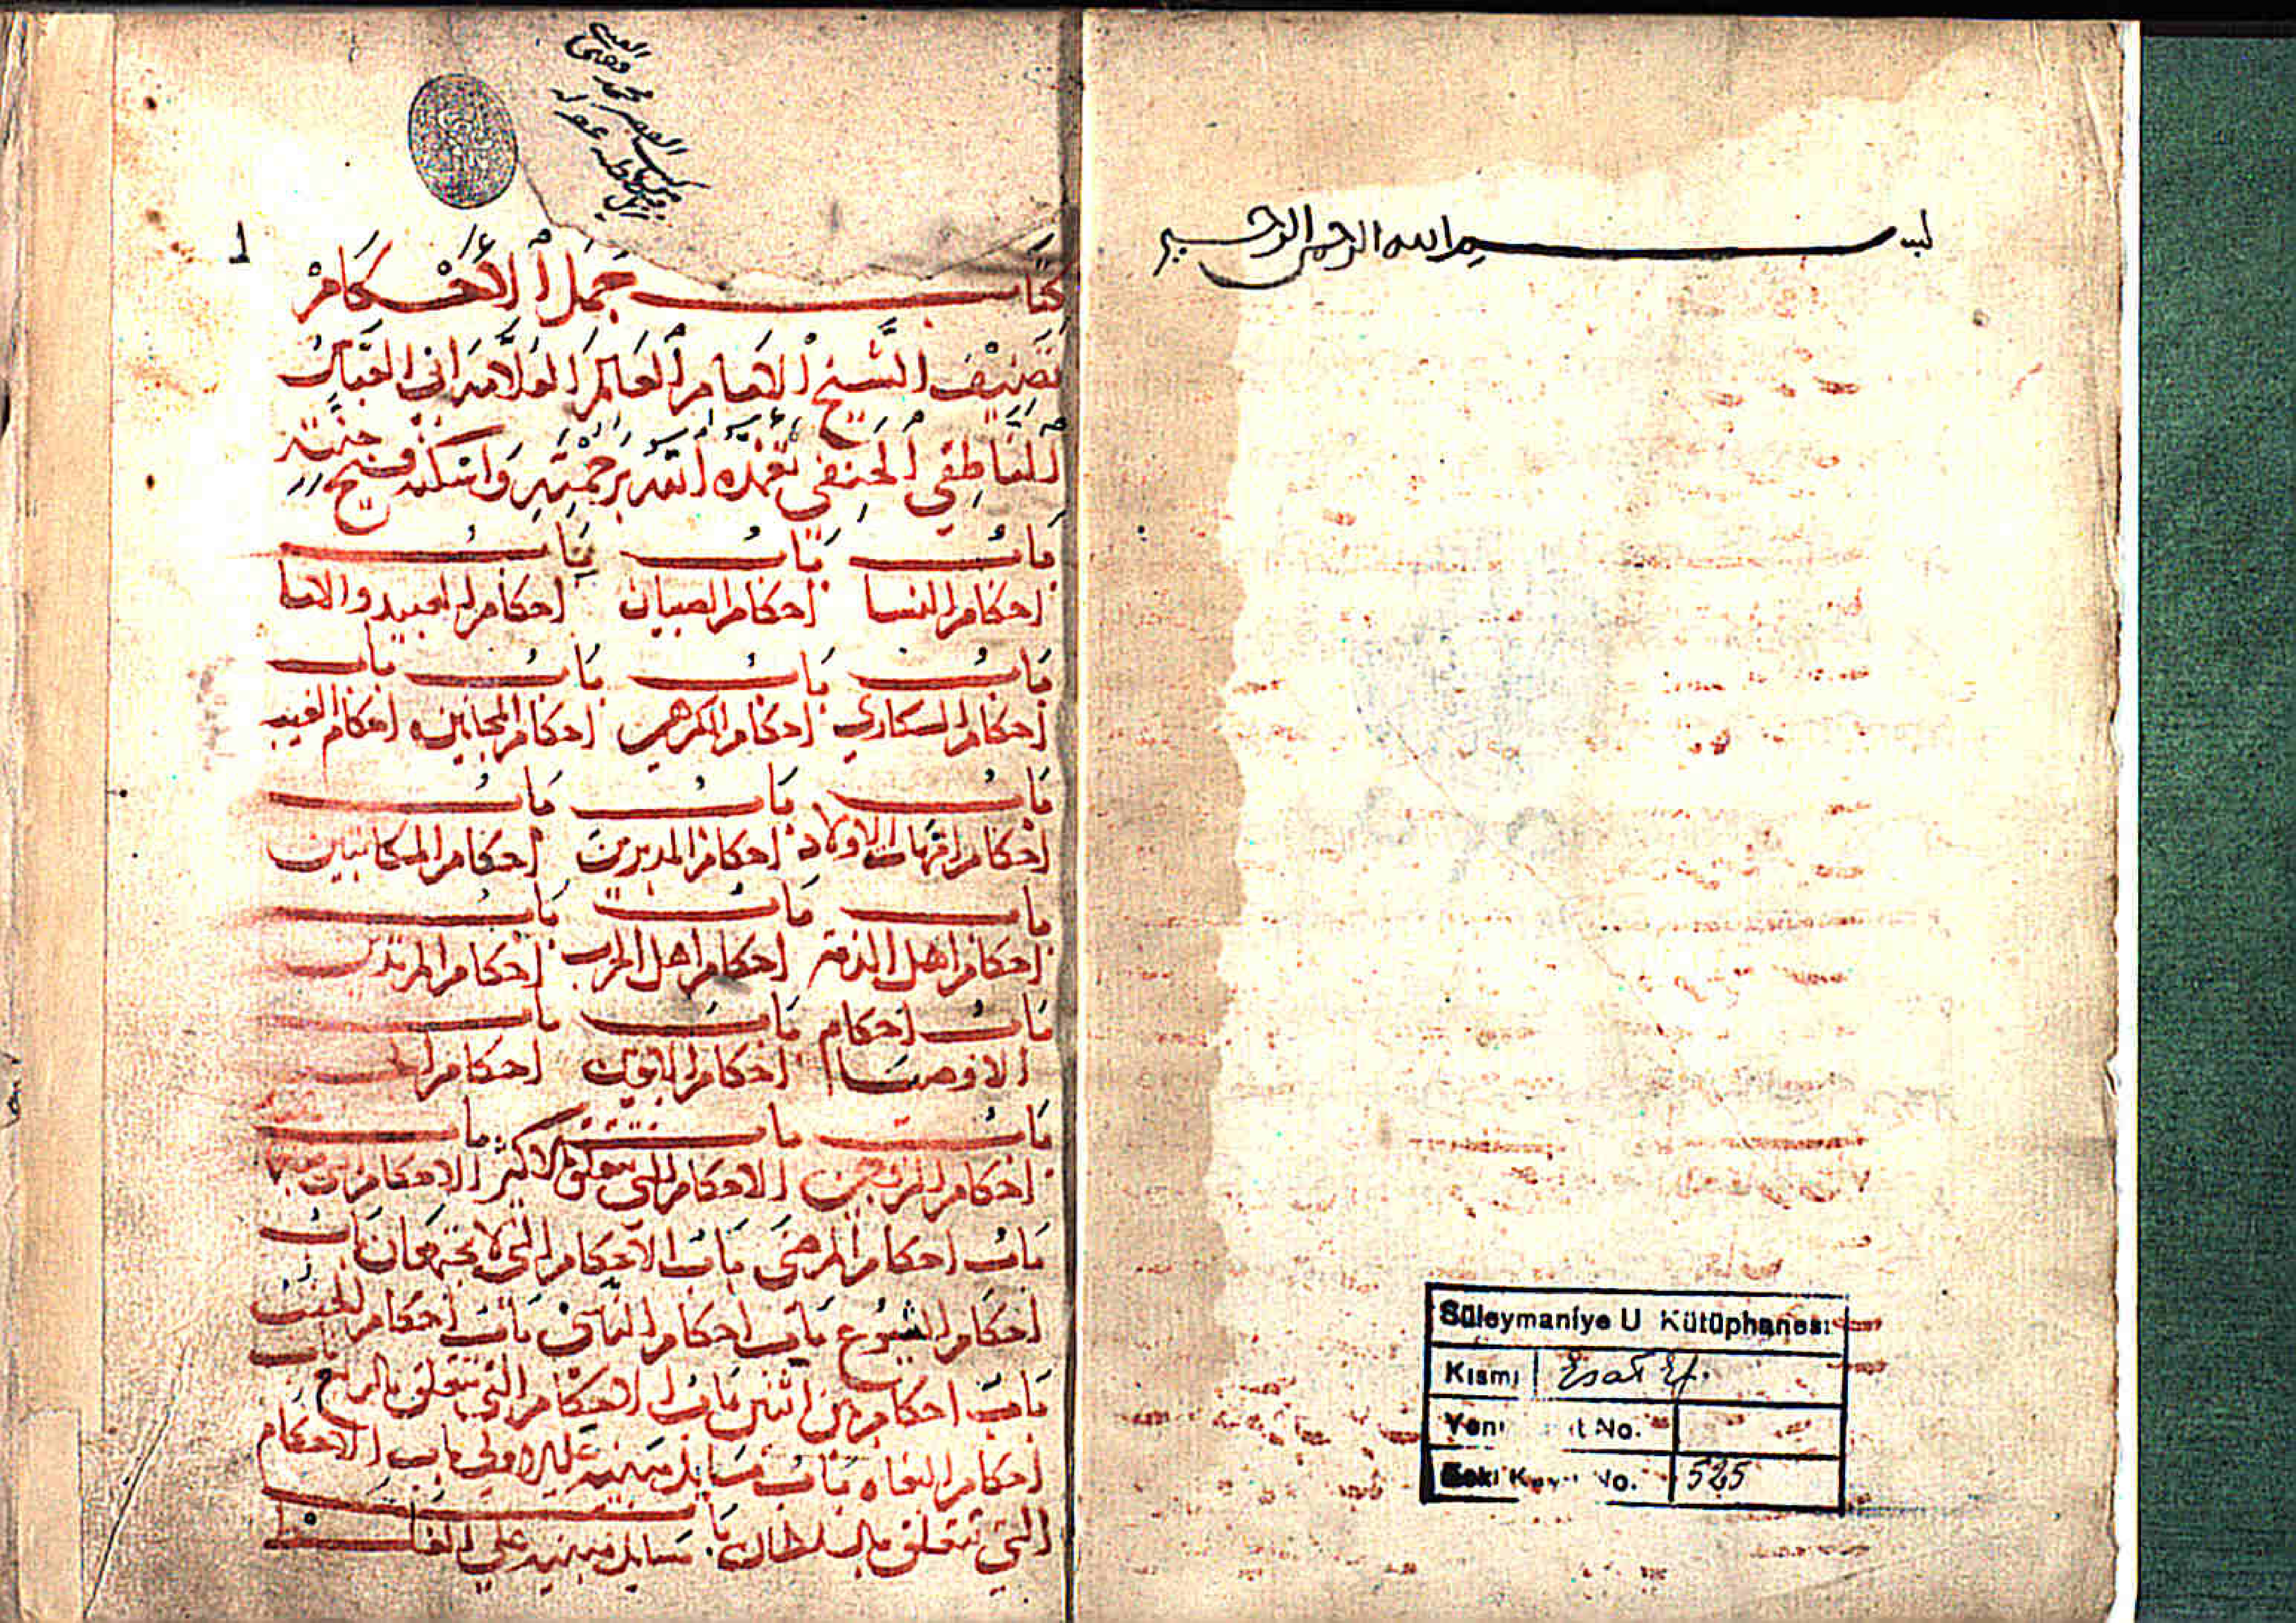 بسم الله الرحمن الرحيم
Süleymaniye U Kütüphanesi
Kısmı Esad Ef.
Yeni t No.
Eski No. 525
١
كتاب جمل الأحكام
تصنيف الشيخ الامام العالم العلامه ابي العباس
الناطفي الحنفي تغمده الله برحمته واسكنه فسيح جنته
باب باب باب
احكام النسا احكام الصبيان احكام العبيد والاما
باب باب باب باب
احكام السكاري احكام المكرهين احكام المجانين احكام الغيب
باب باب باب
احكام امهات الاولاد احكام المدبرين احكام المكاتبين
باب باب باب
احكام اهل الذمة احكام اهل الحرب احكام المرتدين
باب احكام باب باب
الاوصيا احكام الابوين احكام
باب باب باب
احكام الاحكام التي تتعلق الاكثر الاحكام
باب احكام المرضى باب الاحكام التي لا يجتمعان باب
احكام الشيوع باب احكام الناسي باب احكام الجنب
باب احكام بين اثنين باب الاحكام التي تتعلق باب
احكام البغاه باب مسايل مبنيه علي باب الاحكام
التي تتعلق بالسلطان با مسايل مبنيه علي الغلط